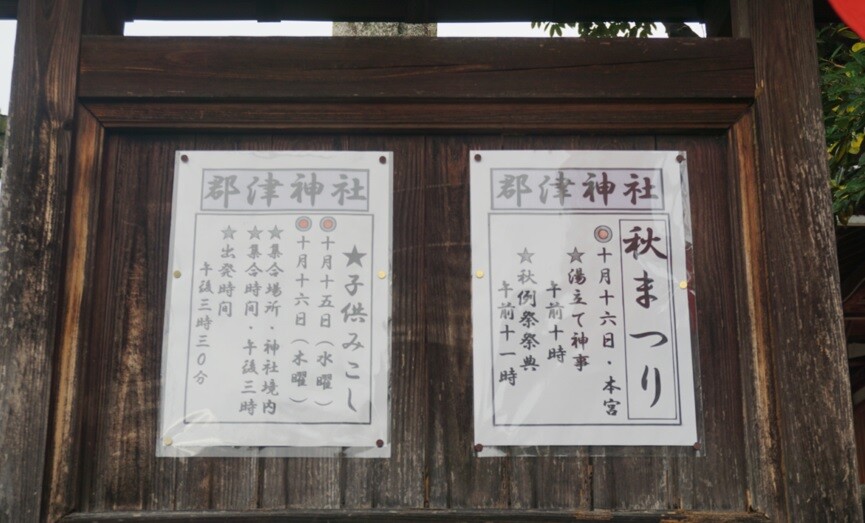 郡津神社
★子供みこし
◉十月十五日（水曜）
◉十月十六日（木曜）
★集合場所・神社境内
★集合時間・午後三時
★出発時間
午後三時三０分
郡津神社
秋まつり
◉十月十六日・本宮
★湯立て神事
午前十時
★秋例祭祭典
午前十一時